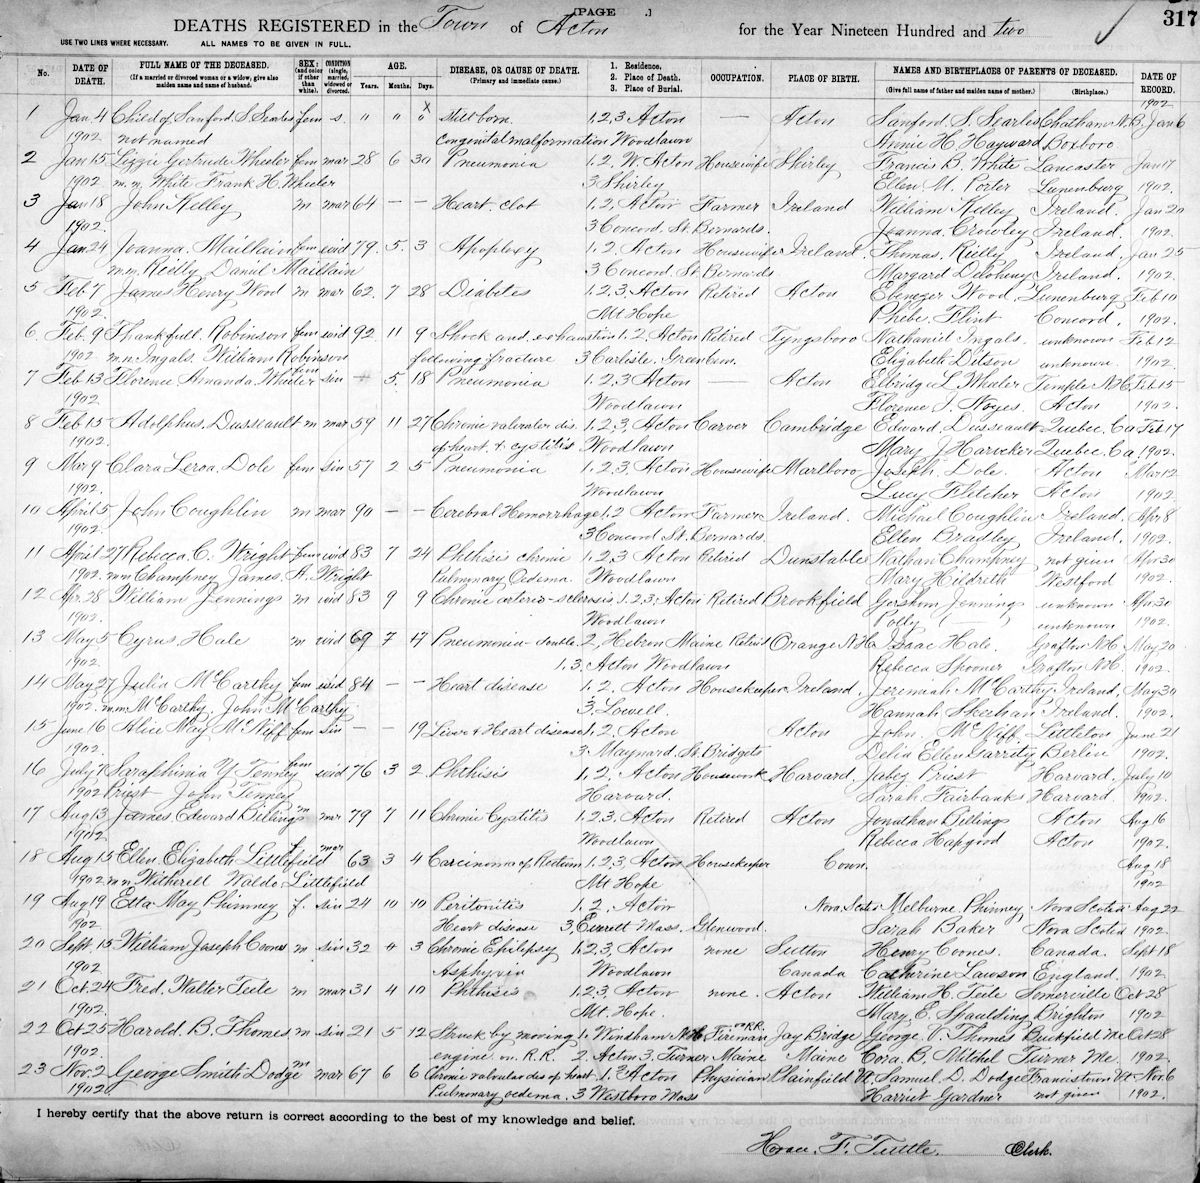 [PAGE .]
317
DEATHS REGISTERED in the Town of Acton for the Year Nineteen Hundred and two
USE TWO LINES WHERE NECESSARY. ALL NAMES TO BE GIVEN IN FULL.
No. DATE OF DEATH. FULL NAME OF THE DECEASED. (If a married or divorced woman or a widow, give also maiden name and name of husband.) SEX: (and color if other than white). CONDITION (single, married, widowed or divorced. AGE. Years. Months. Days. DISEASE, OR CAUSE OF DEATH. (Primary and immediate cause.) 1. Residence. 2. Place of Death. 3. Place of Burial. OCCUPATION. PLACE OF BIRTH. NAMES AND BIRTHPLACES OF PARENTS OF DECEASED. (Give full name of father and maiden name of mother.) (Birthplace.) DATE OF RECORD.
1902
1 Jan. 4 Child of Sanford. S. Searles fem s. " " " x Still born. 1,2,3, Acton — Acton Sanford. S. Searles Chatham N.B. Jan 6
1902 not named Congenital malformation Woodlawn Annie H. Hayward Boxboro
2 Jan 15 Lizzie Gertrude Wheeler fem mar 28 6 30 Pneumonia 1. 2. W. Acton Housewife Shirley Francis B. White Lancaster Jan 17
1902 m.n. White Frank H. Wheeler 3 Shirley Ellen M. Porter Lunenburg 1902.
3 Jan 18 John Kelley m mar 64 — — Heart. clot 1. 2. Acton Farmer Ireland William Kelley Ireland. Jan 20
1902. 3 Concord. St. Bernards. Joanna. Crowley Ireland. 1902.
4 Jan. 24 Joanna. fem wid 79. 5. 3 Apoplexy 1. 2. Acton Housewife Ireland. Thomas. Rielly Ireland. Jan 25
m.n. Reilly Daniel 3 Concord St. Bernards Margard Ireland. 1902.
5 Feb 7 James Henry Wood m mar 62. 7 28 Diabetes 1. 2, 3. Acton Retired Acton Ebenezer Wood. Lunenburg Feb 10
1902. Mt Hope Phebe. Flint Concord. 1902.
6. Feb. 9 Thankfull. Robinson fem wid 92 11 9 Shock and exhaustion 1. 2. Acton Retired Tyngsboro Nathaniel Ingals. unknown Feb 12
1902 m.n. Ingals. William Robinson following fracture 3 Carlisle. Green Elizabeth Ditson unknown. 1902.
7 Feb 13 Florence Amanda. Wheeler fem sin — 5. 18 Pneumonia 1. 2, 3 Acton — Acton Elbridge L. Wheeler Temple N.H. Feb 15
1902. Woodlawn Florence J. Noyes. Acton 1902.
8 Feb 15 Adolphus. Dusseault m mar 59 11 27 Chronic valvular dis. 1. 2, 3, Acton Carver Cambridge Edward. Dusseault Quebec. Ca Feb 17
1902. of heart. & cystitis Woodlawn Mary J. Quebec. Ca 1902.
9 Mar 9 Clara Leroa. Dole fem sin 57 2 5 Pneumonia 1. 2. 3, Acton Housewife Marlboro Joseph. Dole. Acton Mar 12
1902. Woodlawn Lucy Fletcher Acton 1902
10 April 5 John Coughlin m mar 90 — — Cerebral Hemorrhage 1. 2 Acton Farmer Ireland. Michael Coughlin Ireland. Apr 8
1902. 3 Concord St. Bernards. Ellen Bradley Ireland. 1902.
11 April 27 Rebecca C. Wright fem wid 83 7 24 Phthisis chronic 1. 2, 3 Acton Retired Dunstable Nathan Champney not given Apr 30
1902. m.n. Champney James. A. Wright Pulmonary Oedema. Woodlawn Mary Hildreth Westford 1902.
12 Apr. 28 William Jennings m wid 83 9 9 Chronic arterio-sclerosis 1. 2. 3, Acton Retired Brookfield Gershom Jennings unknown Apr 30
1902. Woodlawn Polly ( — ) unknown 1902.
13 May 5 Cyrus. Hale m wid 69 7 17 Pneumonia - double. 2, Hebron Maine Retired Orange N.H. Isaac Hale. Grafton N.H. May 20
1902. 1. 3. Acton Woodlawn Rebecca Spooner Grafton N.H. 1902.
14 May 27 Julia McCarthy fem wid 84 — — Heart disease 1. 2. Acton Housekeeper Ireland. Jeremiah McCarthy Ireland, May 30
1902. m.n. McCarthy. John McCarthy 3. Lowell. Hannah Sheehan Ireland. 1902.
15 June 16 Alice May McNiff fem sin — — 19 Liver & Heart disease 1. 2. Acton Acton John. McNiff Littleton June 21
1902. 3. Maynard, St Bridgets Delia Ellen Garrity Berlin 1902.
16 July 7 Saraphinia Y Tenney fem wid 76 3 2 Phthisis 1, 2. Acton Housework Harvard. Jabez Priest Harvard. July 10
1902 Priest John Tenney Harvard. Sarah Fairbanks Harvard. 1902.
17 Aug 13 James Edward Billings m mar 79 7 11 Chronic Cystitis 1. 2. 3. Acton Retired Acton Jonathan Billings Acton Aug 16
1902 Woodlawn Rebecca Hapgood Acton 1902.
18 Aug 15 Ellen Elizabeth Littlefield f. mar 63 3 4 Carcinoma of Rectum 1. 2. 3 Acton Housekeeper Conn. Aug 18
1902 m.n. Witherell Waldo Littlefield Mt Hope 1902
19 Aug 19 Etta May Phinney f. sin 24 10 10 Peritonitis 1. 2. Acton Nova Scotia Melburne Phinney Nova Scotia Aug 22
1902. Heart disease 3, Everett Mass. Glenwood. Sarah Baker Nova Scotia 1902.
20 Sept. 15 William Joseph Coones m sin 32 4 3 Chronic Epilepsy 1. 2. 3, Acton none Sutton Henry Coones. Canada. Sept 18
1902 Asphyxia Woodlawn Canada Cathrine Lawson England. 1902
21 Oct. 24 Fred. Walter Teele m mar 31 4 10 Phthisis 1. 2. 3, Acton none. Acton William H. Teele Somerville Oct 28
1902. Mt. Hope. Mary E. Spaulding Brighton 1902
22 Oct 25 Harold. B. Thomas. m sin 21 5 12 Struck by moving 1. Windham N.H. Fireman on R.R. Jay Bridge George V. Thomas Buckfield Me Oct 28
1902. engine on R.R. 2. Acton 3. Turner Maine Maine Cora. B. Mitchel Turner Me. 1902.
23 Nov. 2 George Smith Dodge m mar 67 6 6 Chronic valvular dis of heart. 1. 2 Acton Physician Plainfield Vt. Samuel D. Dodge Francistown Vt. Nov. 6
1902. Pulmonary oedema. 3 Westboro Mass Harriet Gardner not given 1902.
I hereby certify that the above return is correct according to the best of my knowledge and belief.
Horace. F. Tuttle. Clerk.